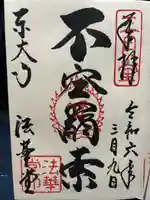 奉拝
令和六年
三月九日
不空羂索
東大寺
法華堂
法華
堂印